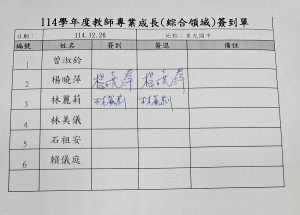 114學年度教師專業成長(綜合領域)簽到單
日期： 114.12.26 地點：東光國中
編號 姓名 簽到 簽退 備註
1 曾淑鈴
2 楊曉萍 楊曉萍 楊曉萍
3 林麗莉 林麗莉 林麗莉
4 林美儀
5 石祖安
6 賴儀庭